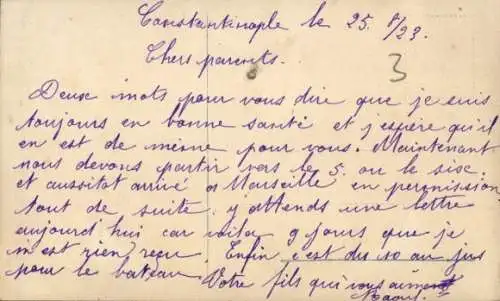 Constantinople le 25. 8/23.
Chers parents.
3
Deux mots pour vous dire que je suis
toujours en bonne santé et j'espère qu'il
en est de même pour vous. Maintenant
nous devons partir vers le 5. ou le six.
et aussitot arrivé a Marseille en permission
tout de suite. j'attends une lettre
aujourd'hui car voila 9 jours que je
m'est rien reçu. Enfin c'est du 10 au jus
pour le bateau. Votre fils qui vous aiment